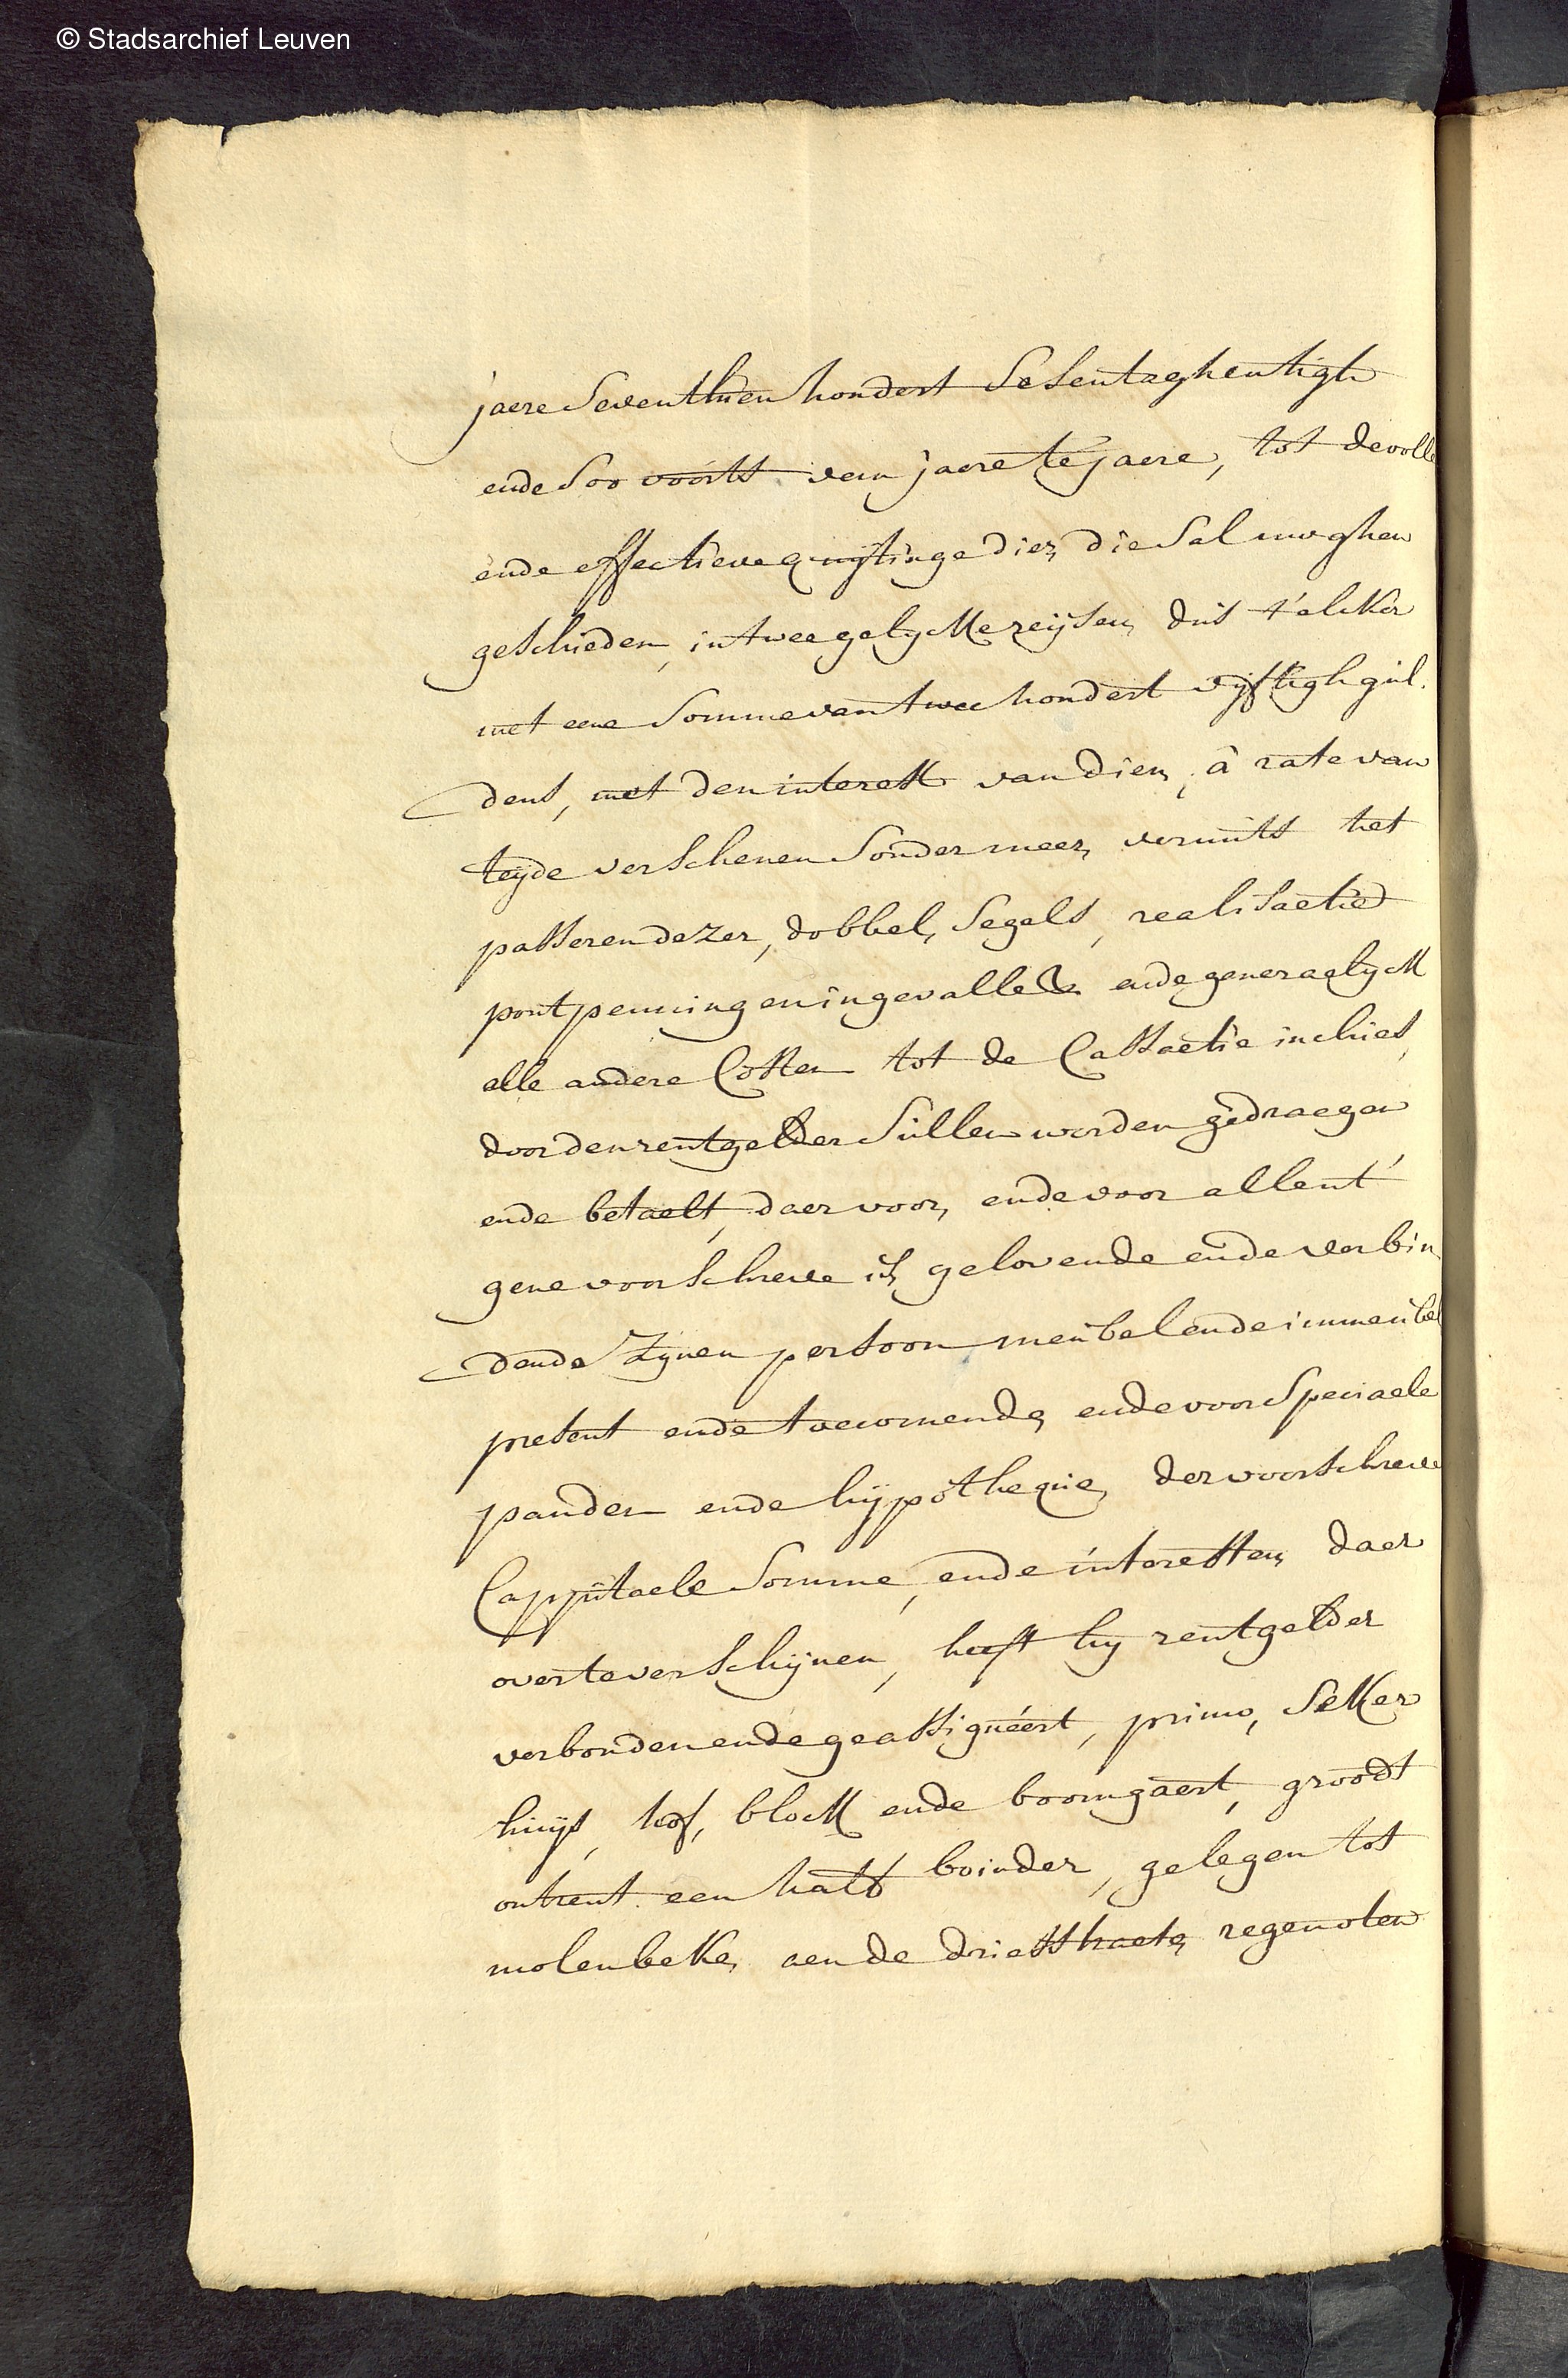 © Stadsarchief Leuven
jaere Seventhien hondert Sesentaghentigh
ende Soo voorts van jaere te jaere, tot de volle
ende effectieve quijtinge dier, die Sal moghen
geschieden, in twee gelyckereijsen, dus t'elcker
met eene Somme van twee hondert vijftigh gul.
dens, met den interest van dien, â rate van
teijde verschenen Sonder meer, vermits het
passeren dezer, dobbel, Segels, realisaetie
pontpenningen ingevalle & ende generaelyck
alle andere Costen tot de Cassaetie inclus,
door den rentgelder Sullen worden gedraegen
ende betaelt, daer voor, ende voor allent'
gene voorschreve is, gelovende ende verbin
dende Zijnen persoon meubel ende immeubel
present ende toecomende, ende voor Speciaele
panden ende hijpotheque, der voorschreve
Cappitaele Somme, ende interesten, daer
over te verschijnen, heeft hij rentgelder
verbonden ende geassigneert, primo, Seker
huijs, hof, block ende boomgaert, groodt
ontrent een half boinder, gelegen tot
molenbeke, aen de driesstraete, regenoten